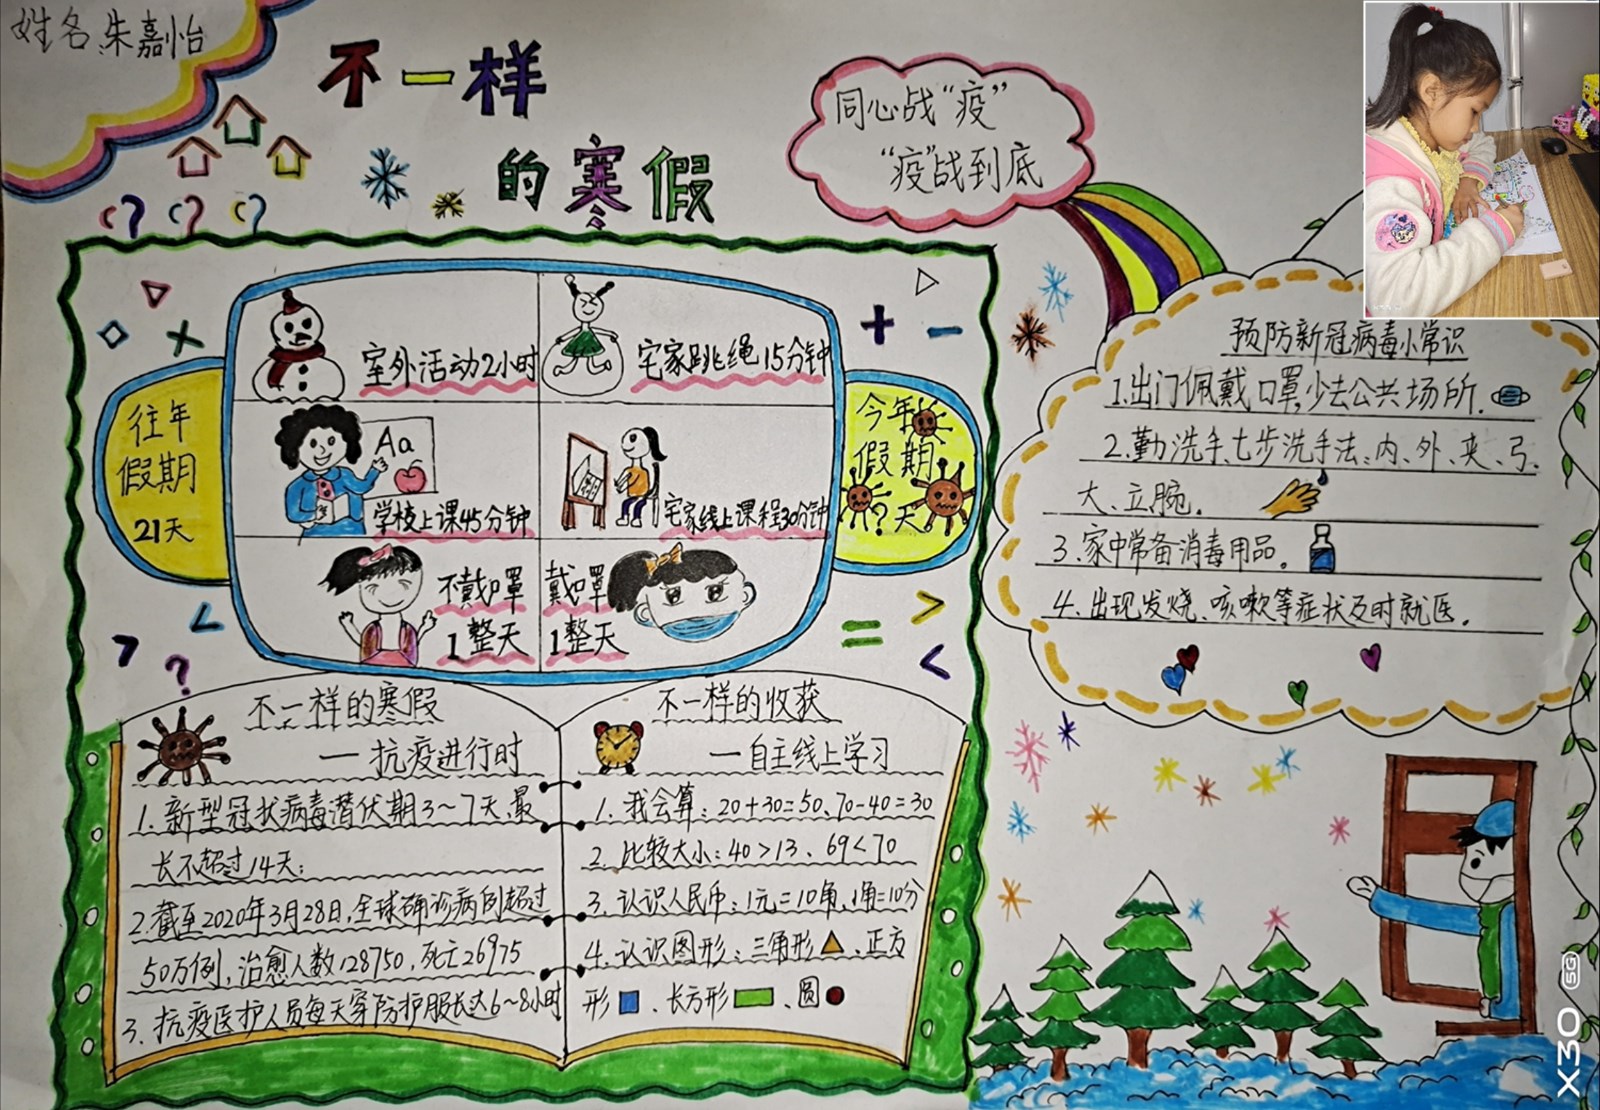 姓名:朱嘉怡
不一样
的寒假
同心战“疫”
“疫”战到底
往年
假期
21天
室外活动2小时
宅家跳绳15分钟
Aa
学校上课45分钟
宅家线上课程30分钟
不戴口罩
1整天
戴口罩
1整天
今年
假期
?天
不一样的寒假
—抗疫进行时
1.新型冠状病毒潜伏期3~7天,最
长不超过14天;
2.截至2020年3月28日,全球确诊病例超过
50万例,治愈人数128750,死亡26975
3.抗疫医护人员每天穿防护服长达6~8小时
不一样的收获
—自主线上学习
1.我会算:20+30=50、70-40=30
2.比较大小:40>13、69<70
3.认识人民币:1元=10角,1角=10分
4.认识图形:三角形、正方
形、长方形、圆
预防新冠病毒小常识
1.出门佩戴口罩,少去公共场所.
2.勤洗手、七步洗手法:内、外、夹、弓、
大、立腕.
3.家中常备消毒用品。
4.出现发烧、咳嗽等症状及时就医.
X30 5G